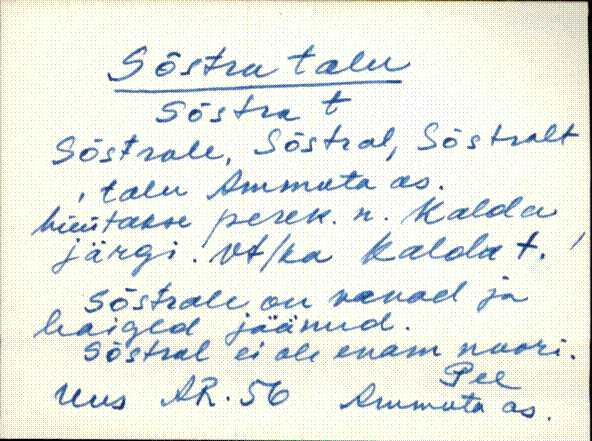 Sõstra talu
Sõstra t
Sõstrale, Sõstral, Sõstralt
, talu Ammuta as.
hüütakse perek. n. Kalda
järgi. Vt/ka Kalda t.
Sõstrale on vanad ja
haiged jäänud.
Sõstral ei ole enam noori.
Pee
Uus AR. 56 Ammuta as.